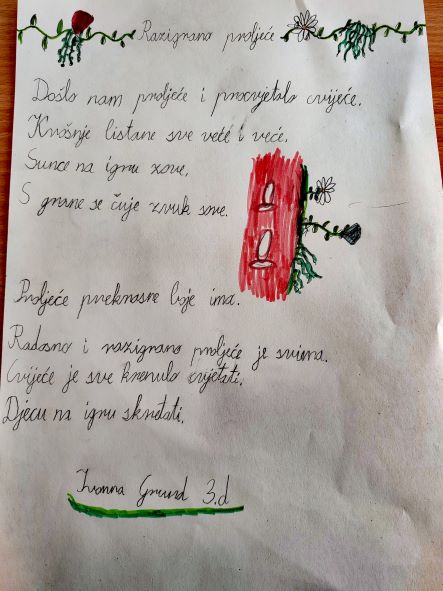 Razigrano proljeće
Došlo nam proljeće i procvjetalo cvijeće.
Krošnje listane sve veće i veće.
Sunce na igru zove,
S grane se čuje zvuk sove.
Proljeće prekrasne boje ima.
Radosno i razigrano proljeće je svima.
Cvijeće je sve krenulo cvjetati,
Djecu na igru
Ivanna Grund 3.d